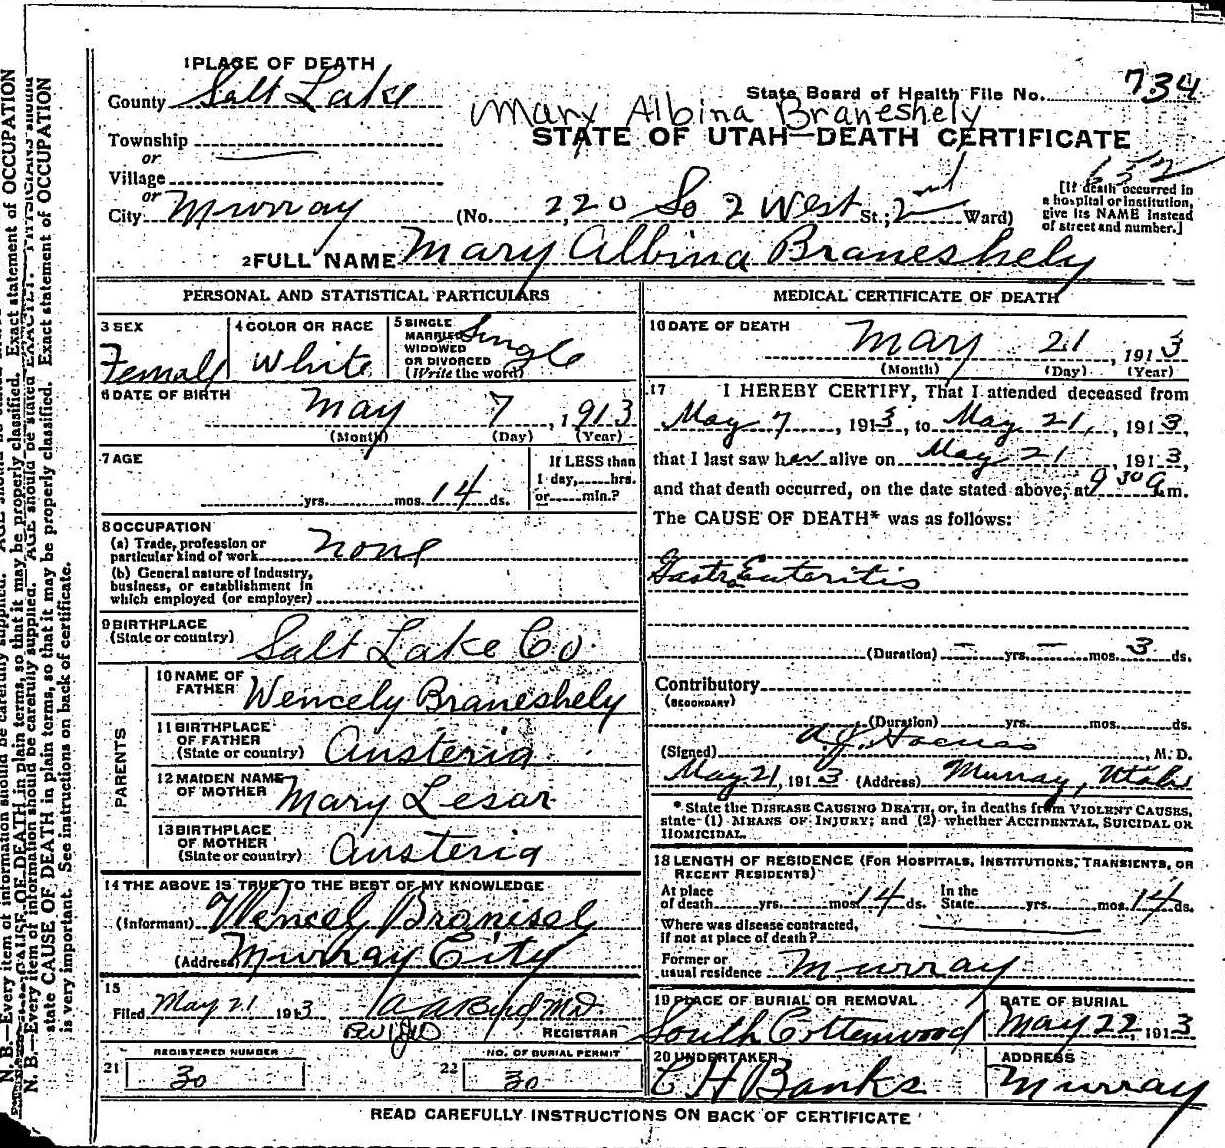 1 PLACE OF DEATH
County Salt Lake
State Board of Health File No. 734
Mary Albina Braneshely
STATE OF UTAH—DEATH CERTIFICATE
Township
or
Village
or
City Murray (No. 220 So 2 West St.; 2nd Ward)
652
[If death occurred in
a hospital or institution,
give its NAME instead
of street and number.]
2 FULL NAME Mary Albina Braneshely
PERSONAL AND STATISTICAL PARTICULARS
3 SEX Female
4 COLOR OR RACE White
5 SINGLE
MARRIED
WIDOWED
OR DIVORCED
(Write the word) Single
6 DATE OF BIRTH May 7, 1913
(Month) (Day) (Year)
7 AGE
yrs. mos. 14 ds.
If LESS than
1 day, hrs.
or min.?
8 OCCUPATION
(a) Trade, profession or
particular kind of work none
(b) General nature of Industry,
business, or establishment in
which employed (or employer)
9 BIRTHPLACE
(State or country) Salt Lake Co.
PARENTS
10 NAME OF
FATHER Wencely Braneshely
11 BIRTHPLACE
OF FATHER
(State or country) Austeria
12 MAIDEN NAME
OF MOTHER Mary Lesar
13 BIRTHPLACE
OF MOTHER
(State or country) Austeria
14 THE ABOVE IS TRUE TO THE BEST OF MY KNOWLEDGE
(Informant) Wencely Branisel
(Address) Murray City
15
Filed May 21 1913
M.D.
REGISTRAR
REGISTERED NUMBER
21 30
NO. OF BURIAL PERMIT
22 30
MEDICAL CERTIFICATE OF DEATH
16 DATE OF DEATH
May 21, 1913
(Month) (Day) (Year)
17 I HEREBY CERTIFY, That I attended deceased from
May 7, 1913, to May 21, 1913,
that I last saw her alive on May 21, 1913,
and that death occurred, on the date stated above, at 9 30 a m.
The CAUSE OF DEATH* was as follows:
Gastro Enteritis
(Duration) – yrs. – mos. 3 ds.
Contributory
(SECONDARY)
(Duration) yrs. mos. ds.
(Signed) , M. D.
May 21, 1913 (Address) Murray, Utah
* State the DISEASE CAUSING DEATH, or, in deaths from VIOLENT CAUSES,
state (1) MEANS OF INJURY; and (2) whether ACCIDENTAL, SUICIDAL OR
HOMICIDAL.
18 LENGTH OF RESIDENCE (FOR HOSPITALS, INSTITUTIONS, TRANSIENTS, OR
RECENT RESIDENTS)
At place
of death yrs. mos. 14 ds. In the
State yrs. mos. 14 ds.
Where was disease contracted,
if not at place of death?
Former or
usual residence Murray
19 PLACE OF BURIAL OR REMOVAL
South Cottenwood
DATE OF BURIAL
May 22, 1913
20 UNDERTAKER
C H Banks
ADDRESS
Murray
READ CAREFULLY INSTRUCTIONS ON BACK OF CERTIFICATE
N. B.—Every item of information should be carefully supplied. AGE should be stated EXACTLY. PHYSICIANS should
state CAUSE OF DEATH in plain terms, so that it may be properly classified. Exact statement of OCCUPATION
is very important. See instructions on back of certificate.